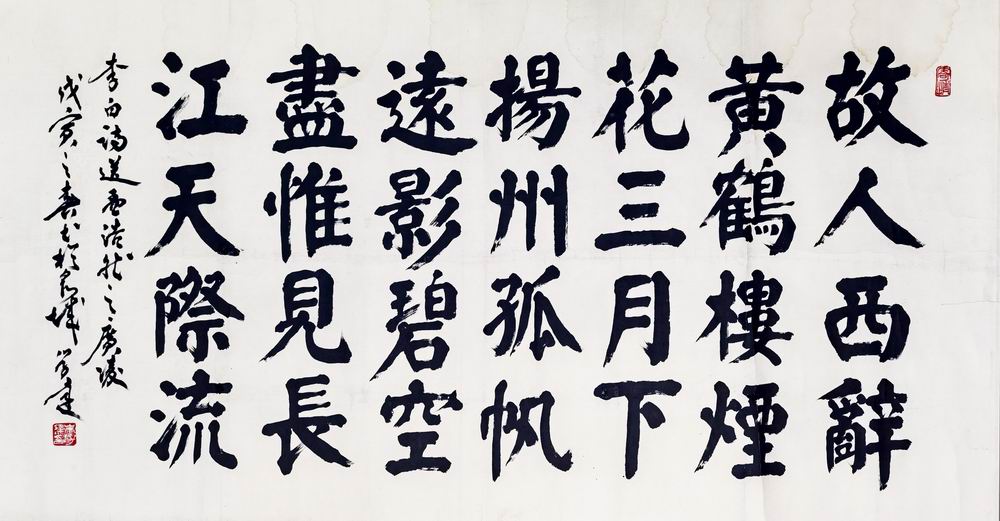 故人西辭
黃鶴樓煙
花三月下
揚州孤帆
遠影碧空
盡惟見長
江天際流
李白詩送孟浩然之廣陵
戊寅之春書於